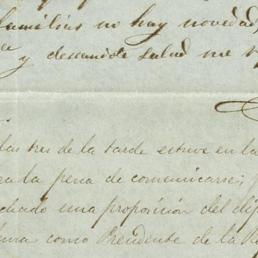 familias no hay novedad,
y deseandole salud me
las tres de la tarde estuve en la
la pena de comunicarse;
chado una proposicion del
como Presidente de la